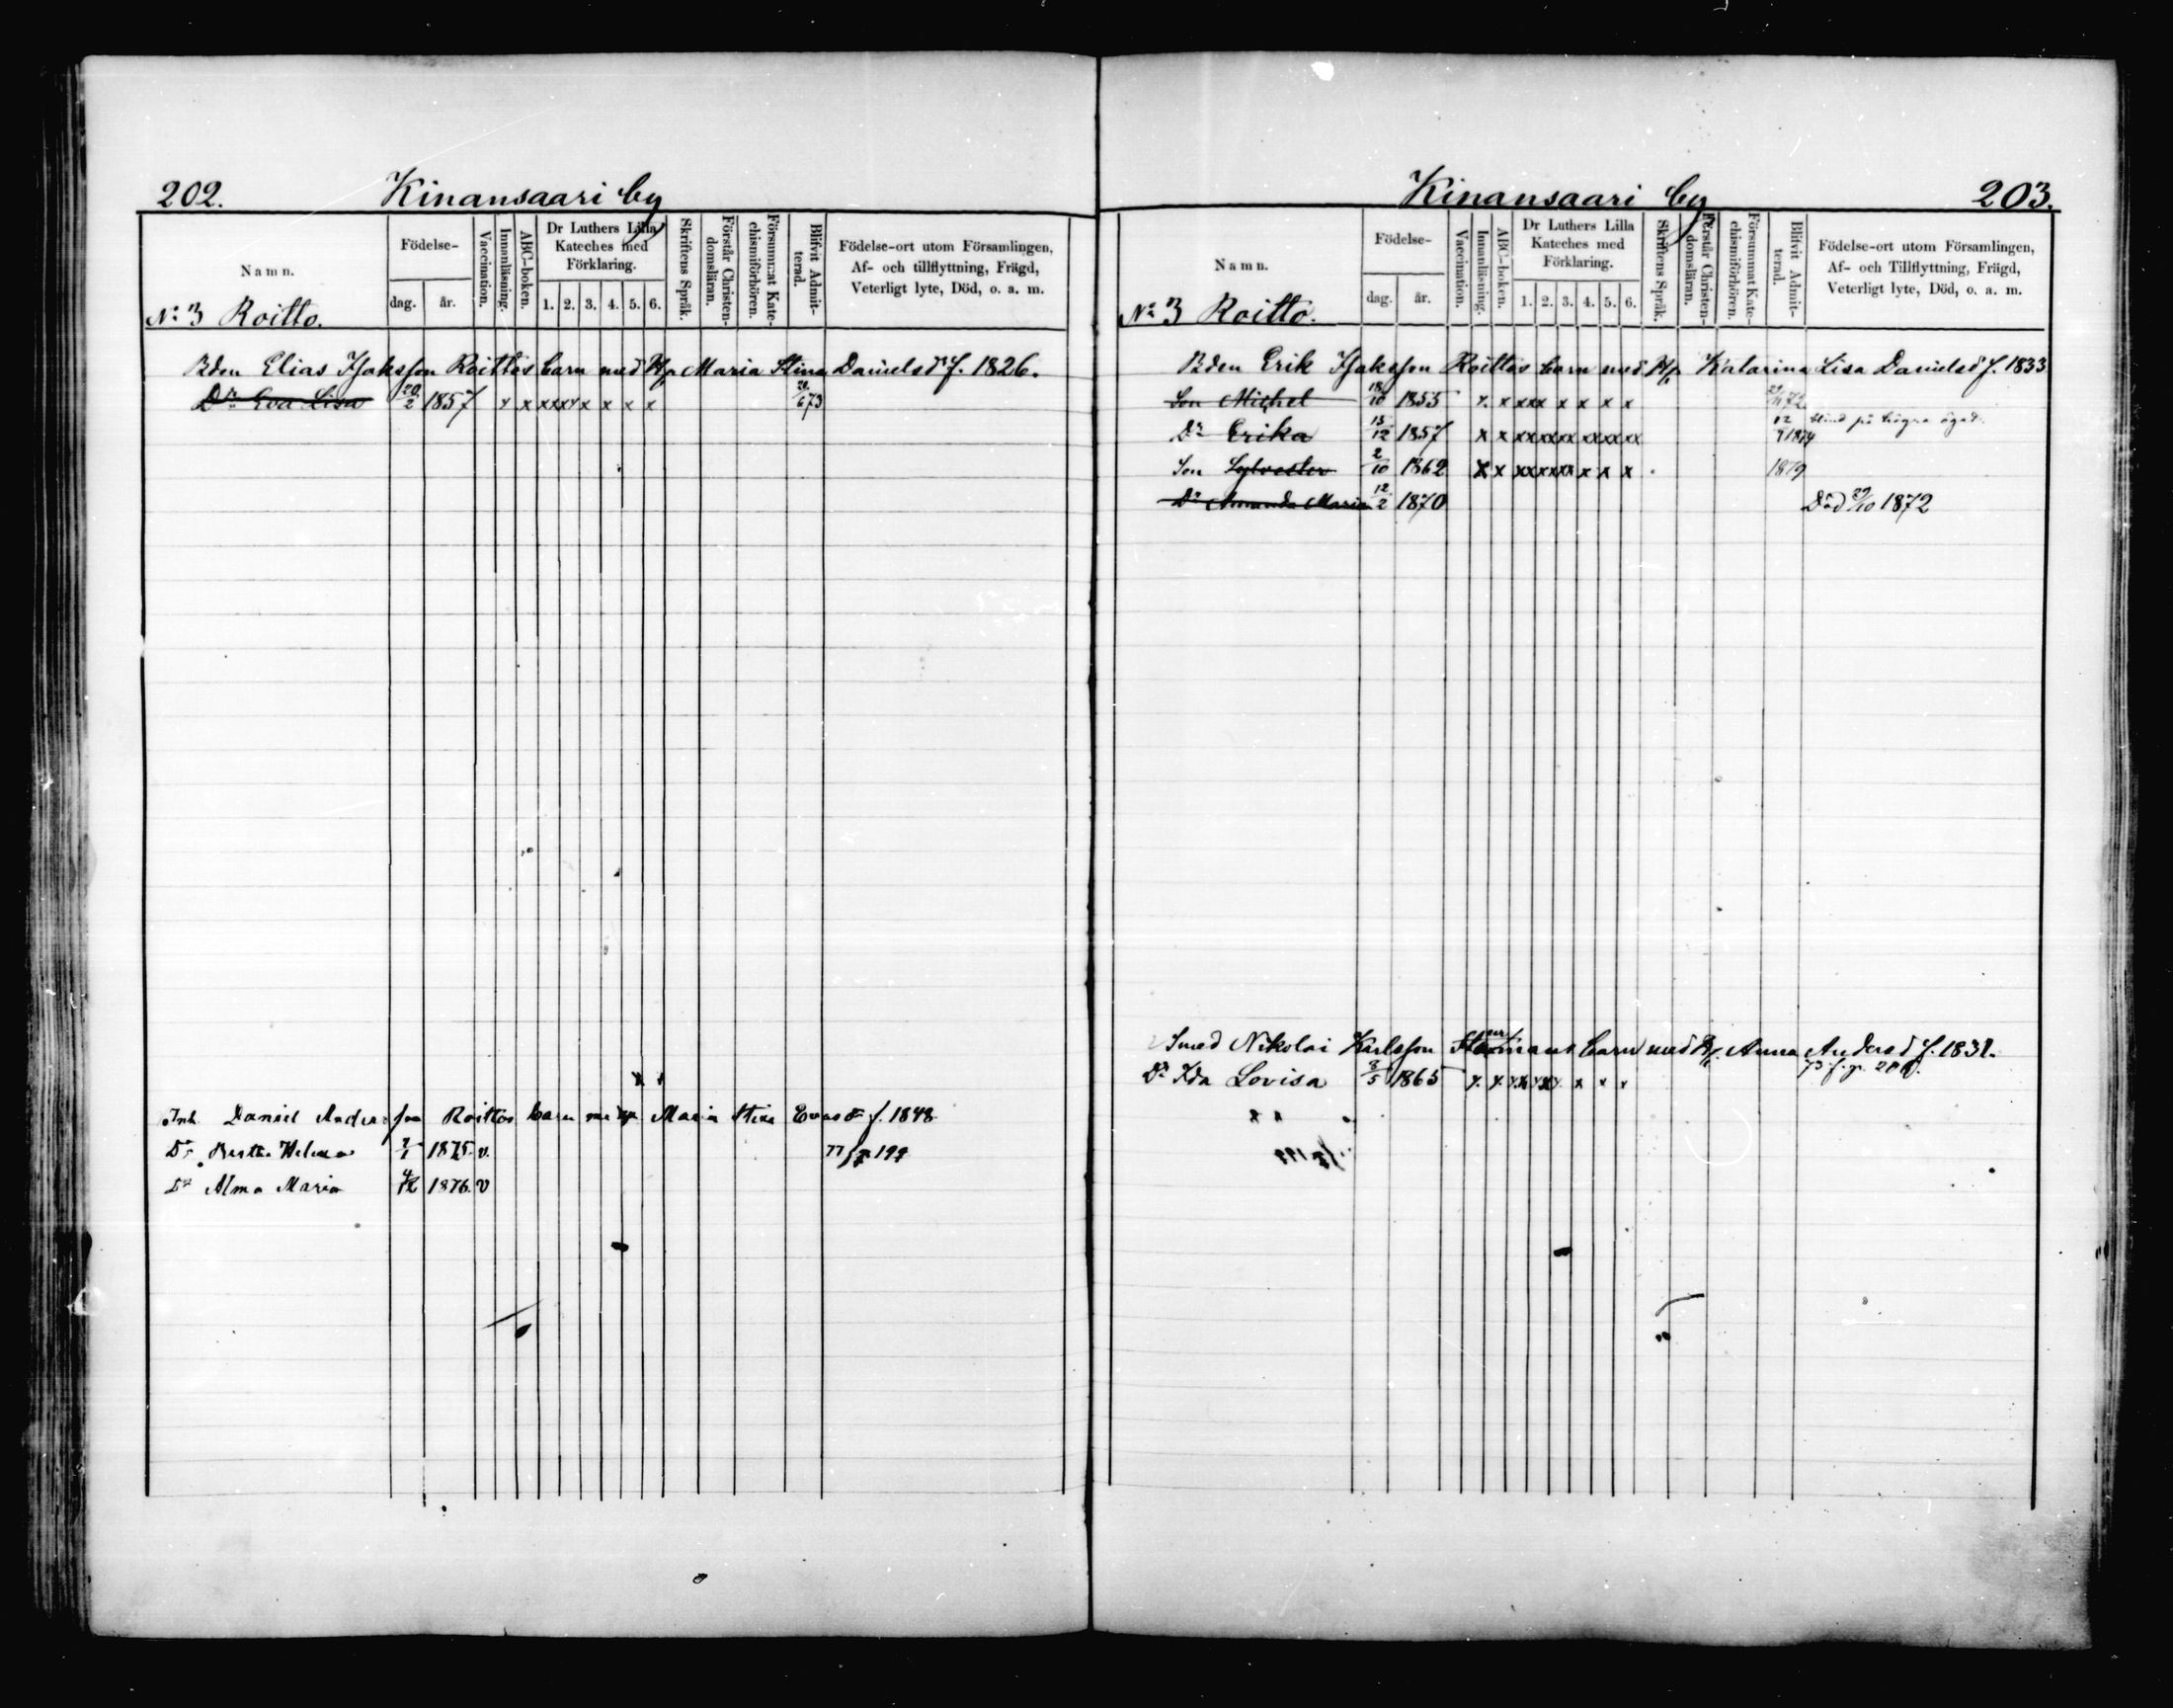 202. Kinansaari by
Namn.
Födelse-
dag. år.
Vaccination.
Innanläsning.
ABC-boken.
Dr Luthers Lilla Kateches med Förklaring.
1. 2. 3. 4. 5. 6.
Skriftens Språk.
Förstår Christen-domsläran.
Försummat Kate-chismiförhören.
Blifvit Admit-terad.
Födelse-ort utom Församlingen,
Af- och tillflyttning, Frägd,
Veterligt lyte, Död, o. a. m.
No 3 Roitto.
Bden Elias Isaksson Roittos barn med H/a Maria Stina Danielsdr f. 1826.
Dr Eva Lisa 20/2 1857 x x xxxx x x x x 20/6 73
Inh. Daniel Andersson Roittos barn med Maria Stina f. 1848
Dr Helena 7/1 1875. v. 77 f. p. 199
Dr Alma Maria 4/12 1876. v
Kinansaari by 203.
Namn.
Födelse-
dag. år.
Vaccination.
Innanläsning.
ABC-boken.
Dr Luthers Lilla Kateches med Förklaring.
1. 2. 3. 4. 5. 6.
Skriftens Språk.
Förstår Christen-domsläran.
Försummat Kate-chismiförhören.
Blifvit Admit-terad.
Födelse-ort utom Församlingen,
Af- och Tillflyttning, Frägd,
Veterligt lyte, Död, o. a. m.
No 3 Roitto.
Bden Erik Isaksson Roittos barn med H/a Katarina Lisa Danielsd f. 1833
Son Michel 18/10 1855 x x xxx x x x x
Dr Erika 15/12 1857 x x xxxxxx xxxxx 1874 blind på högra ögat.
Son Sylvester 2/10 1862 x x xxxxxx x x x 1879
Dr Amanda Maria 12/2 1870 Död 29/10 1872
Smed Nikolai Karlsson barn med H/. Anna Andersd f. 1831.
Dr Ida Lovisa 8/5 1865 x x xxxxx x x x 73 f. p.